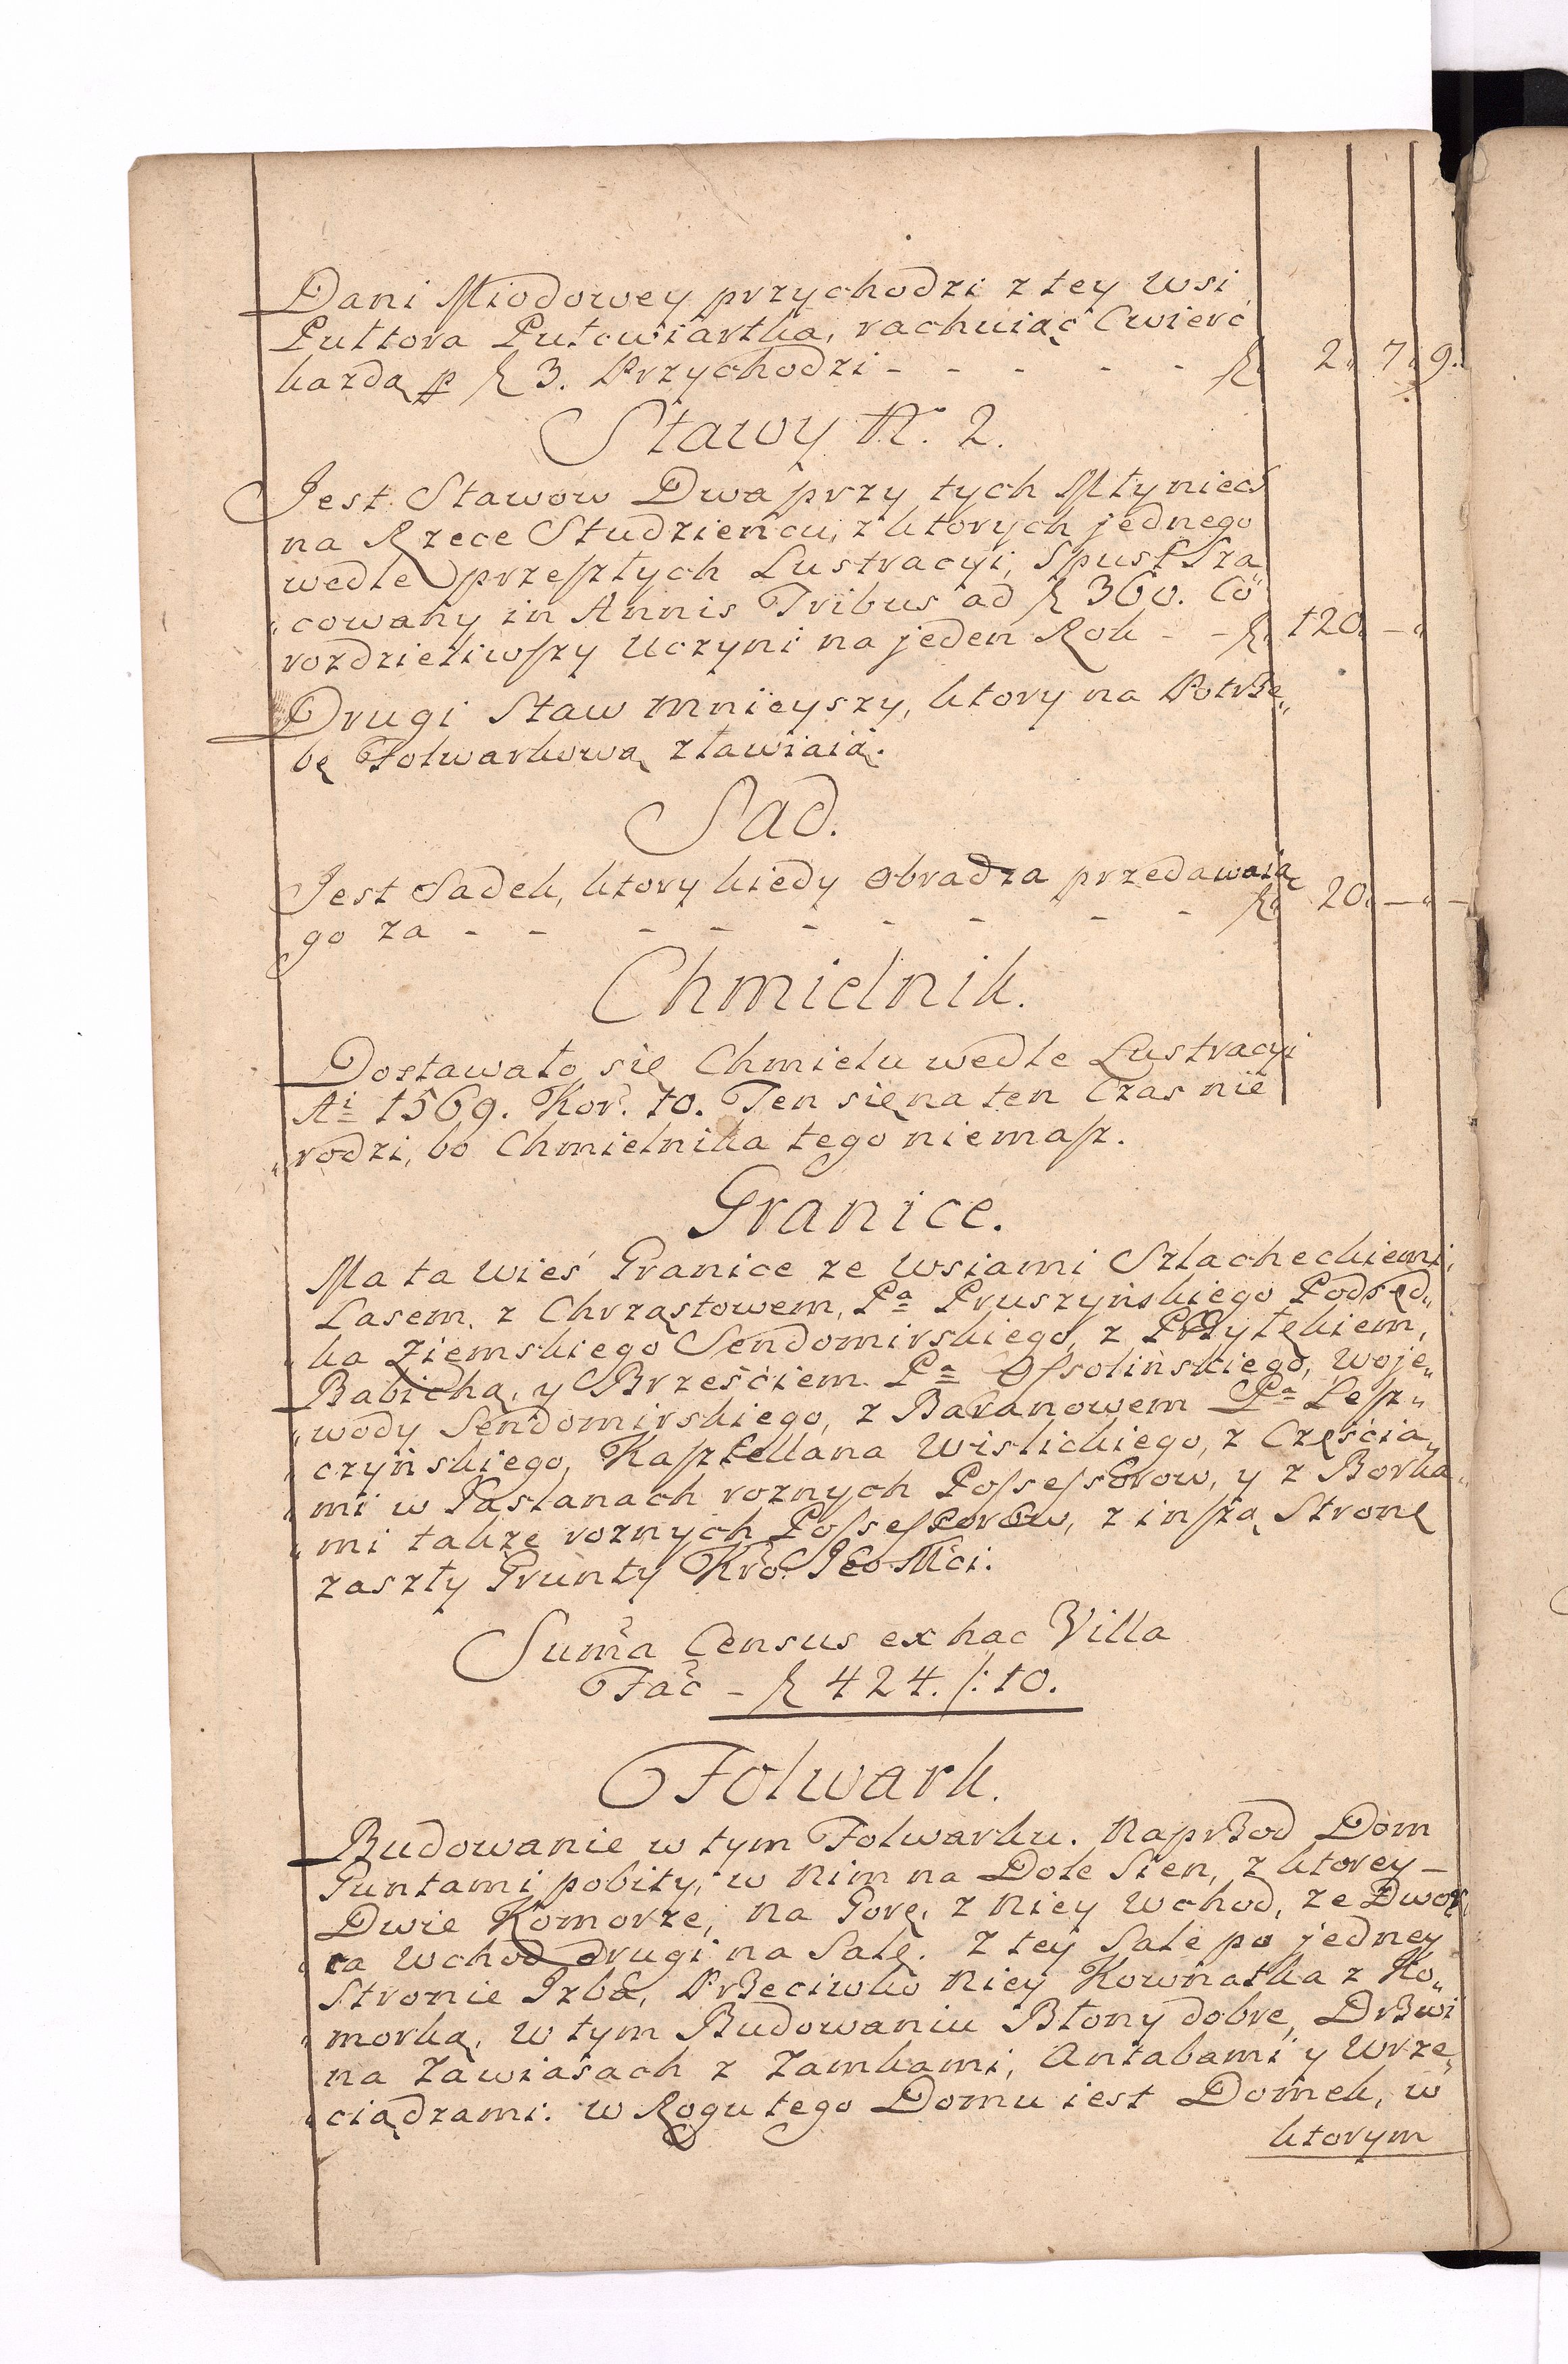 Dani Miodowey przychodzi z tey Wsi
Pułtora Pułcwiartka, rachuiąc Cwierc
kazdą ꝓ fl 3. Przychodzi - - - - - fl. 2. 7. 9.
Stawy N. 2.
Jest Stawow Dwa przy tych Młyniech
na Rzece Studzieńcu, z ktorych jednego
wedle przeszłych Lustracyi, Spust Sza
„cowany in Annis Tribus ad fl 360. Co
rozdzieliwszy Uczyni na jeden Rok - - fl. 120. -„
Drugi Staw mnieyszy, ktory na Potrze„
bę Folwarkową zławiaią.
Sad.
Jest Sadek, ktory kiedy Obradza przedawaią
go za - - - - - - - - - fl. 20. -„ -
Chmielnik.
Dostawało się Chmielu wedle Lustracyi
Ai 1569. Kor. 10. Ten się na ten Czas nie
„rodzi, bo Chmielnika tego niemasz.
Granice.
Ma ta Wieś Granice ze Wsiami Szlacheckiemi,
Lasem, z Chrząstowem, Pa Pruszyńskiego Podsęd„
„ka Ziemskiego Sendomirskiego, z Przytękiem,
Babichą, y Brześciem Pa Ossolińskiego, Woje„
„wody Sendomirskiego, z Baranowem Pa Lesz„
„czyńskiego, Kasztellana Wislickiego, z Częścia„
„mi w Pasłanach roznych Possessorow, y z Borka„
„mi takze roznych Possessorow, z inszą Stronę
zaszły Grunty Kro. Jeo Mci.
Sum̃a Census ex hac Villa
Fac̃ - fl 424. /: 10.
Folwark.
Budowanie w tym Folwarku. Naprzod Dom
Guntami pobity, w Nim na Dole Sien, z ktorey -
Dwie Komorze, na Gorę, z Niey Wchod, ze Dwor„
„ca Wchod drugi na Salę. Z tey Sale po jedney
Stronie Izba, Przeciwko Niey Kownatka z Ko„
„morką, w tym Budowaniu Błony dobre, Drzwi
na Zawiasach z Zamkami, Antabami y Wrze„
„ciądzami: w Rogu tego Domu iest Domek, w
ktorym